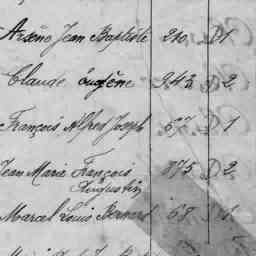 Arsène Jean Baptiste 210. D 1
Claude Eugène 943. D 2
François Alfred Joseph 57. D 1
Jean Marie François 875 D 2
Augustin
Marcel Louis Bernard 68 D